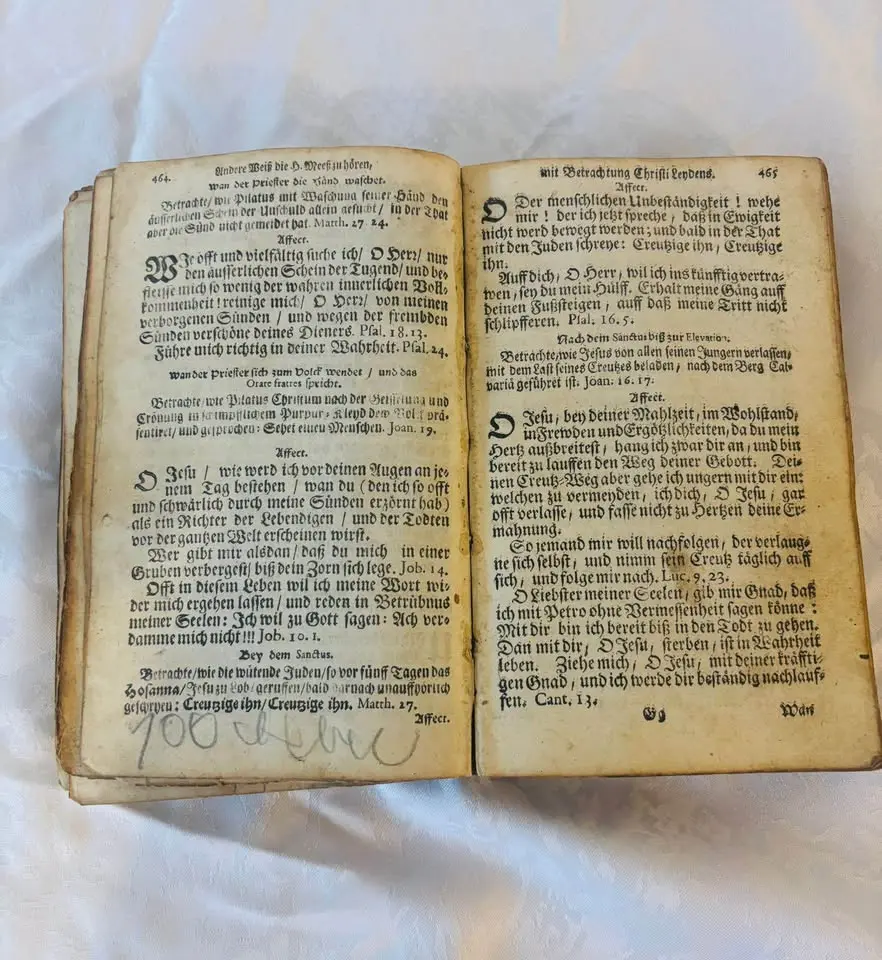 464.
Andere Weiß die H. Meeß zu hören,
wan der Priester die Händ waschet.
Betrachte/ wie Pilatus mit Waschung seiner Händ den
äusserlichen Schein der Unschuld allein gesucht/ in der That
aber die Sünd nicht gemeidet hat. Matth. 27. 24.
Affect.
Wie offt und vielfältig suche ich/ O Herr/ nur
den äusserlichen Schein der Tugend/ und be-
fleisse mich so wenig der wahren innerlichen Voll-
kommenheit! reinige mich/ O Herr/ von meinen
verborgenen Sünden / und wegen der frembden
Sünden verschöne deines Dieners. Psal. 18. 13.
Führe mich richtig in deiner Wahrheit. Psal. 24.
wan der Priester sich zum Volck wendet / und das
Orate fratres spricht.
Betrachte/ wie Pilatus Christum nach der Geisselung und
Crönung in schimpflichem Purpur-Kleyd dem Volck prä-
sentiret/ und gesprochen: Sehet einen Menschen. Joan. 19.
Affect.
O Jesu / wie werd ich vor deinen Augen an je-
nem Tag bestehen / wan du (den ich so offt
und schwärlich durch meine Sünden erzörnt hab)
als ein Richter der Lebendigen / und der Todten
vor der gantzen Welt erscheinen wirst.
Wer gibt mir alsdan/ daß du mich in einer
Gruben verbergest/ biß dein Zorn sich lege. Job. 14.
Offt in diesem Leben wil ich meine Wort wi-
der mich ergehen lassen/ und reden in Betrübnus
meiner Seelen: Ich wil zu Gott sagen: Ach ver-
damme mich nicht!!! Job. 10. 1.
Bey dem Sanctus.
Betrachte/wie die wütende Juden/so vor fünff Tagen das
Hosanna/ Jesu zu Lob/ geruffen/bald darnach unauffhörlich
geschryen: Creutzige ihn/ Creutzige ihn. Matth. 27.
Affect.
100
mit Betrachtung Christi Leydens. 465
Affect.
O Der menschlichen Unbeständigkeit! wehe
mir! der ich jetzt spreche, daß in Ewigkeit
nicht werd bewegt werden; und bald in der That
mit den Juden schreye: Creutzige ihn, Creutzige
ihn.
Auff dich, O Herr, wil ich ins künfftig vertra-
wen, sey du mein Hülff. Erhalt meine Gäng auff
deinen Fußsteigen, auff daß meine Tritt nicht
schlipfferen. Psal. 16. 5.
Nach dem Sanctus biß zur Elevation.
Betrachte, wie Jesus von allen seinen Jungern verlassen,
mit dem Last seines Creutzes beladen, nach dem Berg Cal-
variä geführet ist. Joan. 16. 17.
Affect.
O Jesu, bey deiner Mahlzeit, im Wohlstand,
in Frewden und Ergötzlichkeiten, da du mein
Hertz außbreitest, hang ich zwar dir an, und bin
bereit zu lauffen den Weg deiner Gebott. Dei-
nen Creutz-Weg aber gehe ich ungern mit dir ein:
welchen zu vermeyden, ich dich, O Jesu, gar
offt verlasse, und fasse nicht zu Hertzen deine Er-
mahnung.
So jemand mir will nachfolgen, der verlaug-
ne sich selbst, und nimm sein Creutz täglich auff
sich, und folge mir nach. Luc. 9. 23.
O Liebster meiner Seelen, gib mir Gnad, daß
ich mit Petro ohne Vermessenheit sagen könne:
Mit dir bin ich bereit biß in den Todt zu gehen.
Dan mit dir, O Jesu, sterben, ist in Wahrheit
leben. Ziehe mich, O Jesu, mit deiner kräffti-
gen Gnad, und ich werde dir beständig nachlauf-
fen. Cant. 13.
Gg Wan